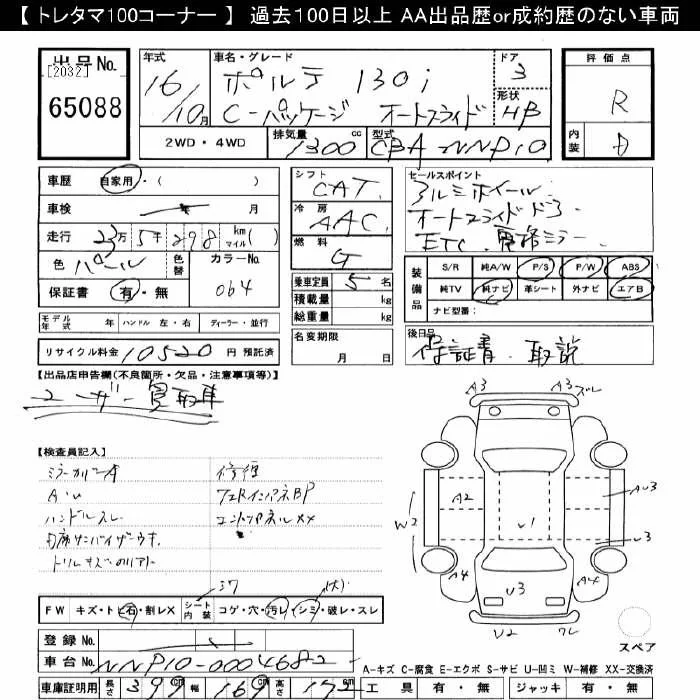 【 トレタマ100コーナー 】 過去100日以上 AA出品歴or成約歴のない車両
出品No.
[2032]
65088
年式
16/10月
車名・グレード
ポルテ 130i
C-パッケージ オートスライド
ドア
3
形状
HB
2WD・4WD
排気量
1300cc
型式
CBA-NNP10
評価点
R
内装
D
車歴 自家用・( )
車検 月
走行 23万5千298 km マイル( )
色 パール 色替 カラーNo. 064
保証書 有・無
モデル年式 年 ハンドル 左・右 ディーラー・並行
リサイクル料金 10520 円 預託済
シフト
CAT
冷房
AAC
燃料
G
乗車定員 5 名
積載量 kg
総重量 kg
名変期限
月 日
セールスポイント
アルミホイール
オートスライドドア
ETC. 電格ミラー
装備品
S/R 純A/W P/S P/W ABS
純TV 純ナビ 革シート 外ナビ エアB
ナビ型番:
後日品
保証書. 取説
【出品店申告欄(不良箇所・欠品・注意事項等)】
ユーザー買取車
【検査員記入】
ミラーカバーA
A・U
ハンドルスレ
内席サンバイザーウキ
修復
FエンドパネルXX
A3 A3 スレ
A2 U1 U3
W2
A4 U3 A4
U2 ワレ
スペア
FW キズ・ト・石・割レX シート内装 コゲ・穴・汚レ・シミ・破レ・スレ
登録No.
車台No. NNP10-0004682
車庫証明用 長さ 399cm 幅 169cm 高さ 172cm
A-キズ C-腐食 E-エクボ S-サビ U-凹ミ W-補修 XX-交換済
工具 有・無 ジャッキ 有・無